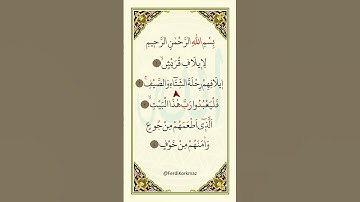 بِسْمِ اللّٰهِ الرَّحْمٰنِ الرَّحٖيمِ
لِاٖيلَافِ قُرَيْشٍۙ ١
اٖيلَافِهِمْ رِحْلَةَ الشِّتَٓاءِ وَالصَّيْفِۚ ٢
فَلْيَعْبُدُوا رَبَّ هٰذَا الْبَيْتِۙ ٣
اَلَّذٖٓي اَطْعَمَهُمْ مِنْ جُوعٍ
وَاٰمَنَهُمْ مِنْ خَوْفٍ ٤
@FerdiKorkmaz